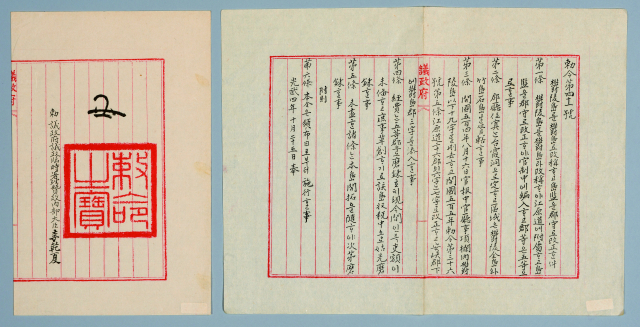 勅令第四十一號
鬱陵島를鬱島로改稱ᄒᆞ고島監을郡守로改正ᄒᆞᆫ件
第一條 鬱陵島를鬱島라改稱ᄒᆞ야江原道에附屬ᄒᆞ고島
監을郡守로改正ᄒᆞ야官制中에編入ᄒᆞ고郡等은五等으
로ᄒᆞᆯ事
第二條 郡廳位寘ᄂᆞᆫ台霞洞으로定ᄒᆞ고區域은鬱陵全島와
竹島石島를管轄ᄒᆞᆯ事
第三條 開國五百四年八月十六日官報中官廳事項欄內鬱
陵島以下十九字를刪去ᄒᆞ고開國五百五年勅令第三十六
號第五條江原道二十六郡의六字ᄂᆞᆫ七字로改正ᄒᆞ고安峽郡下
에鬱島郡三字를添入ᄒᆞᆯ事
第四條 經費ᄂᆞᆫ五等郡으로磨鍊호ᄃᆡ現今間인즉吏額이
未備ᄒᆞ고庶事草創ᄒᆞ기로該島收稅中으로姑先磨
鍊ᄒᆞᆯ事
第五條 未盡ᄒᆞᆫ諸條ᄂᆞᆫ本島開拓을隨ᄒᆞ야次第磨
鍊ᄒᆞᆯ事
附則
議政府
第六條 本令은頒布日로부터施行ᄒᆞᆯ事
光武四年十月二十五日奉
勅 議政府議政臨時署理贊政內部大臣李乾夏
勅命之寶
議政府